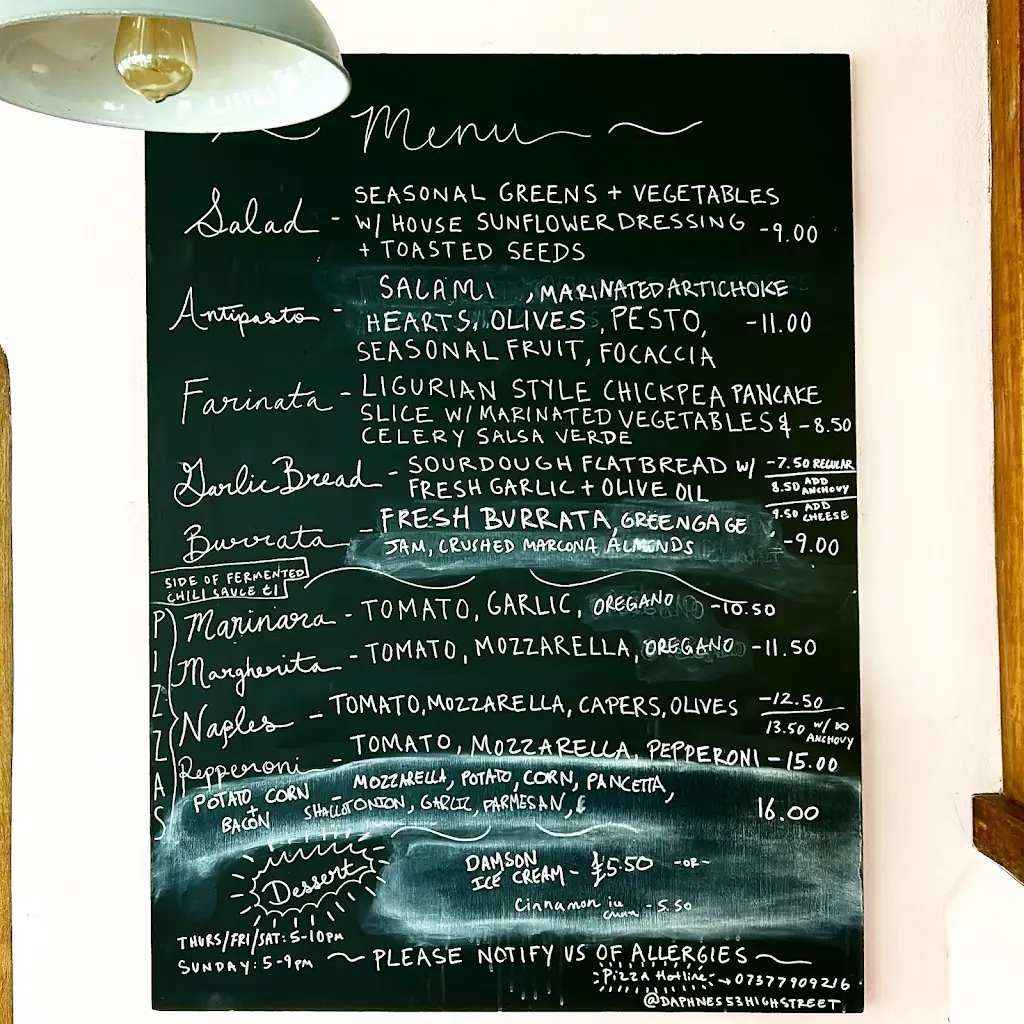 Menu
Salad - SEASONAL GREENS + VEGETABLES
W/ HOUSE SUNFLOWER DRESSING -9.00
+ TOASTED SEEDS
Antipasto - SALAMI , MARINATED ARTICHOKE
HEARTS, OLIVES, PESTO, -11.00
SEASONAL FRUIT, FOCACCIA
Farinata - LIGURIAN STYLE CHICKPEA PANCAKE
SLICE W/ MARINATED VEGETABLES & -8.50
CELERY SALSA VERDE
Garlic Bread - SOURDOUGH FLATBREAD W/ -7.50 REGULAR
FRESH GARLIC + OLIVE OIL 8.50 ADD ANCHOVY
9.50 ADD CHEESE
Burrata - FRESH BURRATA, GREENGAGE
JAM, CRUSHED MARCONA ALMONDS -9.00
SIDE OF FERMENTED
CHILI SAUCE £1
PIZZAS
Marinara - TOMATO, GARLIC, OREGANO -10.50
Margherita - TOMATO, MOZZARELLA, OREGANO -11.50
Naples - TOMATO, MOZZARELLA, CAPERS, OLIVES -12.50
13.50 W/ ANCHOVY
Pepperoni - TOMATO, MOZZARELLA, PEPPERONI -15.00
POTATO CORN - MOZZARELLA, POTATO, CORN, PANCETTA,
+ BACON SHALLOT ONION, GARLIC, PARMESAN, & 16.00
Dessert
DAMSON
ICE CREAM - £5.50 -OR-
Cinnamon ice cream - 5.50
THURS/FRI/SAT: 5-10PM
SUNDAY: 5-9PM
PLEASE NOTIFY US OF ALLERGIES
Pizza Hotline → 07377909216
@DAPHNES53HIGHSTREET